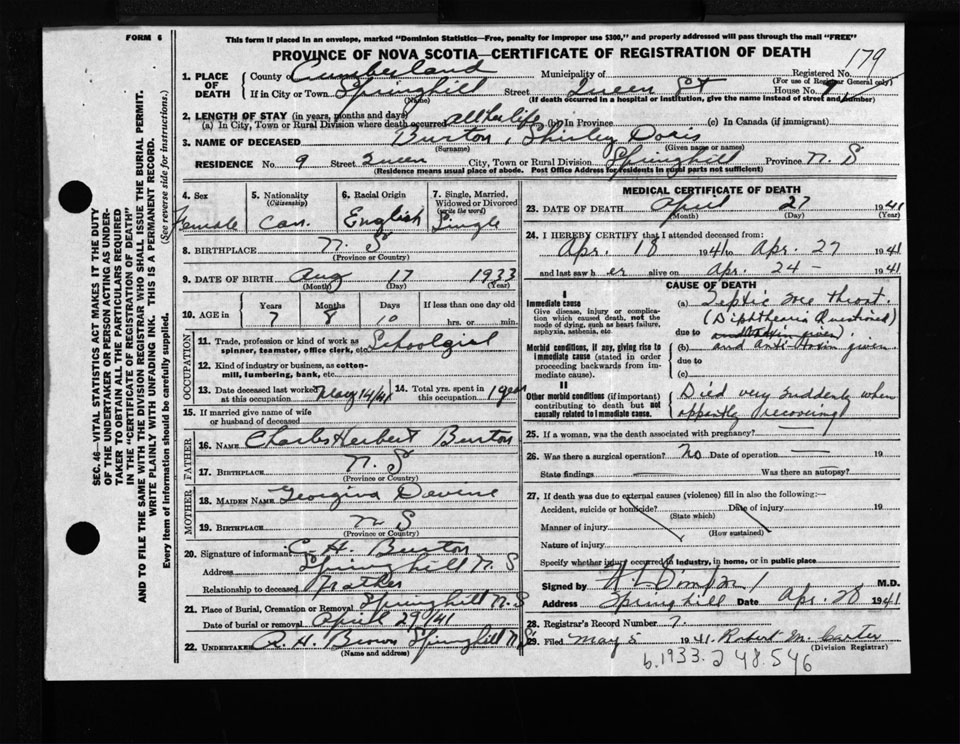 FORM 6
This form if placed in an envelope, marked "Dominion Statistics—Free, penalty for improper use $300," and properly addressed will pass through the mail "FREE"
PROVINCE OF NOVA SCOTIA—CERTIFICATE OF REGISTRATION OF DEATH
179
SEC. 46—VITAL STATISTICS ACT MAKES IT THE DUTY
OF THE UNDERTAKER OR PERSON ACTING AS UNDER-
TAKER TO OBTAIN ALL THE PARTICULARS REQUIRED
IN THE "CERTIFICATE OF REGISTRATION OF DEATH"
AND TO FILE THE SAME WITH THE DIVISION REGISTRAR WHO SHALL ISSUE THE BURIAL PERMIT.
WRITE PLAINLY WITH UNFADING INK. THIS IS A PERMANENT RECORD.
Every item of information should be carefully supplied. (See reverse side for instructions.)
1. PLACE OF DEATH
County of Cumberland Municipality of Registered No.
(For use of Registrar General only)
If in City or Town Springhill Street Queen St House No. 9
(Name) (If death occurred in a hospital or institution, give the name instead of street and number)
2. LENGTH OF STAY (in years, months and days)
(a) In City, Town or Rural Division where death occurred all her life (b) In Province (c) In Canada (if immigrant)
3. NAME OF DECEASED Burton, Shirley Doris
(Surname) (Given name or names)
RESIDENCE No. 9 Street Queen City, Town or Rural Division Springhill Province N. S
(Residence means usual place of abode. Post Office Address for residents in rural parts not sufficient)
4. Sex 5. Nationality (Citizenship) 6. Racial Origin 7. Single, Married, Widowed or Divorced (write the word)
Female Can. English Single
8. BIRTHPLACE N. S
(Province or Country)
9. DATE OF BIRTH Aug 17 1933
(Month) (Day) (Year)
10. AGE in Years Months Days If less than one day old
7 8 10 hrs. or min.
OCCUPATION
11. Trade, profession or kind of work as spinner, teamster, office clerk, etc. Schoolgirl
12. Kind of industry or business, as cotton-mill, lumbering, bank, etc.
13. Date deceased last worked at this occupation 14/41 14. Total yrs. spent in this occupation 1 year
15. If married give name of wife or husband of deceased
FATHER
16. NAME Charles Herbert Burton
17. BIRTHPLACE N. S
(Province or Country)
MOTHER
18. MAIDEN NAME Georgina Devine
19. BIRTHPLACE N S
(Province or Country)
20. Signature of informant C. H. Burton
Address Springhill N. S
Relationship to deceased Father
21. Place of Burial, Cremation or Removal Springhill N. S
Date of burial or removal April 29/41
22. UNDERTAKER A. H. Brown Springhill N. S
(Name and address)
MEDICAL CERTIFICATE OF DEATH
23. DATE OF DEATH April 27 1941
(Month) (Day) (Year)
24. I HEREBY CERTIFY that I attended deceased from:
Apr. 18 1941 to Apr. 27 1941
and last saw her alive on Apr. 24 - 1941
CAUSE OF DEATH
I
Immediate cause
Give disease, injury or complication which caused death, not the mode of dying, such as heart failure, asphyxia, asthenia, etc.
(a) Septic sore throat.
(Diphtheria Questioned)
due to
Morbid conditions, if any, giving rise to immediate cause (stated in order proceeding backwards from immediate cause).
(b) and Anti toxin given.
due to
(c)
II
Other morbid conditions (if important) contributing to death but not causally related to immediate cause.
Died very suddenly when
apparently recovering
25. If a woman, was the death associated with pregnancy?
26. Was there a surgical operation? No Date of operation — 19
State findings Was there an autopsy?
27. If death was due to external causes (violence) fill in also the following:—
Accident, suicide or homicide? Date of injury 19
(State which)
Manner of injury
(How sustained)
Nature of injury
Specify whether injury occurred in industry, in home, or in public place
Signed by M.D.
Address Springhill Date Apr. 28 1941
28. Registrar's Record Number 7.
29. Filed May 5 1941. Robert M. Carter
(Division Registrar)
b. 1933. 248.546